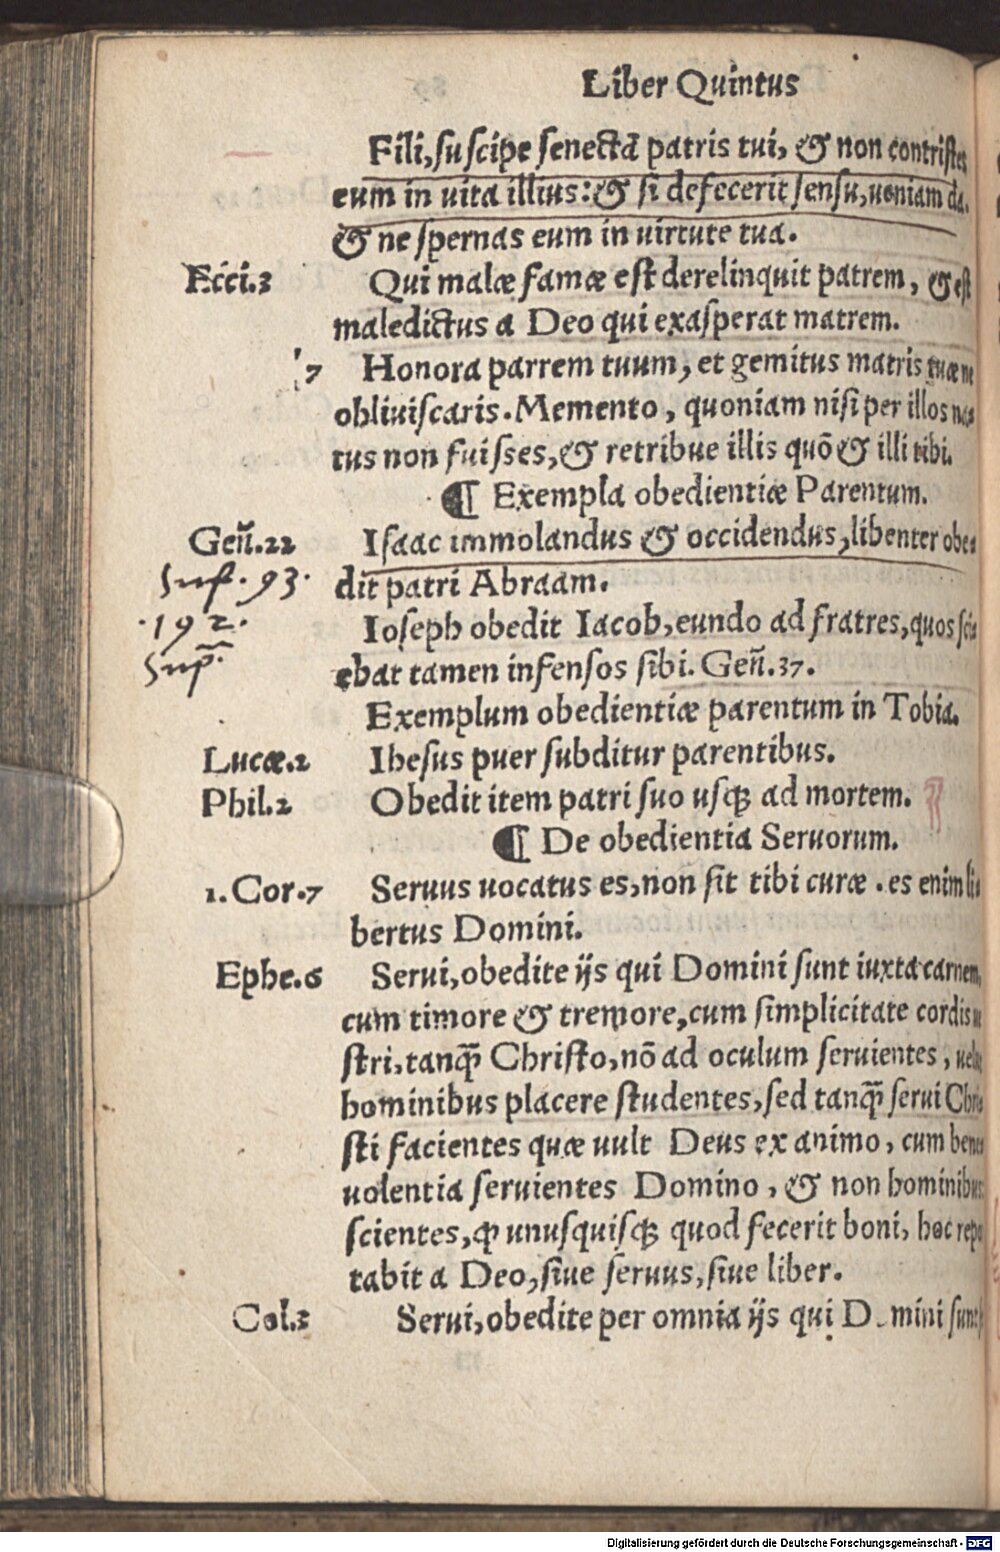 Liber Quintus
Fili, suscipe senectã patris tui, & non contristes
eum in uita illius: & si defecerit sensu, ueniam da.
& ne spernas eum in uirtute tua.
Ecci.3 Qui malæ famæ est derelinquit patrem, & est
maledictus a Deo qui exasperat matrem.
7 Honora parrem tuum, et gemitus matris tuæ ne
obliuiscaris. Memento, quoniam nisi per illos na
tus non fuisses, & retribue illis quõ & illi tibi.
¶ Exempla obedientiæ Parentum.
Geñ.22 Isaac immolandus & occidendus, libenter obe
Suß. 93. dit patri Abraam.
.192. Ioseph obedit Iacob, eundo ad fratres, quos sci
Sup̄. ebat tamen infensos sibi. Geñ.37.
Exemplum obedientiæ parentum in Tobia.
Lucæ.2 Ihesus puer subditur parentibus.
Phil.2 Obedit item patri suo usqꝫ ad mortem.
¶ De obedientia Seruorum.
1. Cor.7 Seruus uocatus es, non sit tibi curæ. es enim li
bertus Domini.
Ephe.6 Serui, obedite ijs qui Domini sunt iuxta carnem,
cum timore & tremore, cum simplicitate cordis ue
stri, tanq̃ Christo, nõ ad oculum seruientes, uelut
hominibus placere studentes, sed tanq̃ serui Chri
sti facientes quæ uult Deus ex animo, cum bene
uolentia seruientes Domino, & non hominibus
scientes, ꝙ unusquisqꝫ quod fecerit boni, hoc repo
tabit a Deo, siue seruus, siue liber.
Col.3 Serui, obedite per omnia ijs qui D mini sunt
Digitalisierung gefördert durch die Deutsche Forschungsgemeinschaft - DFG